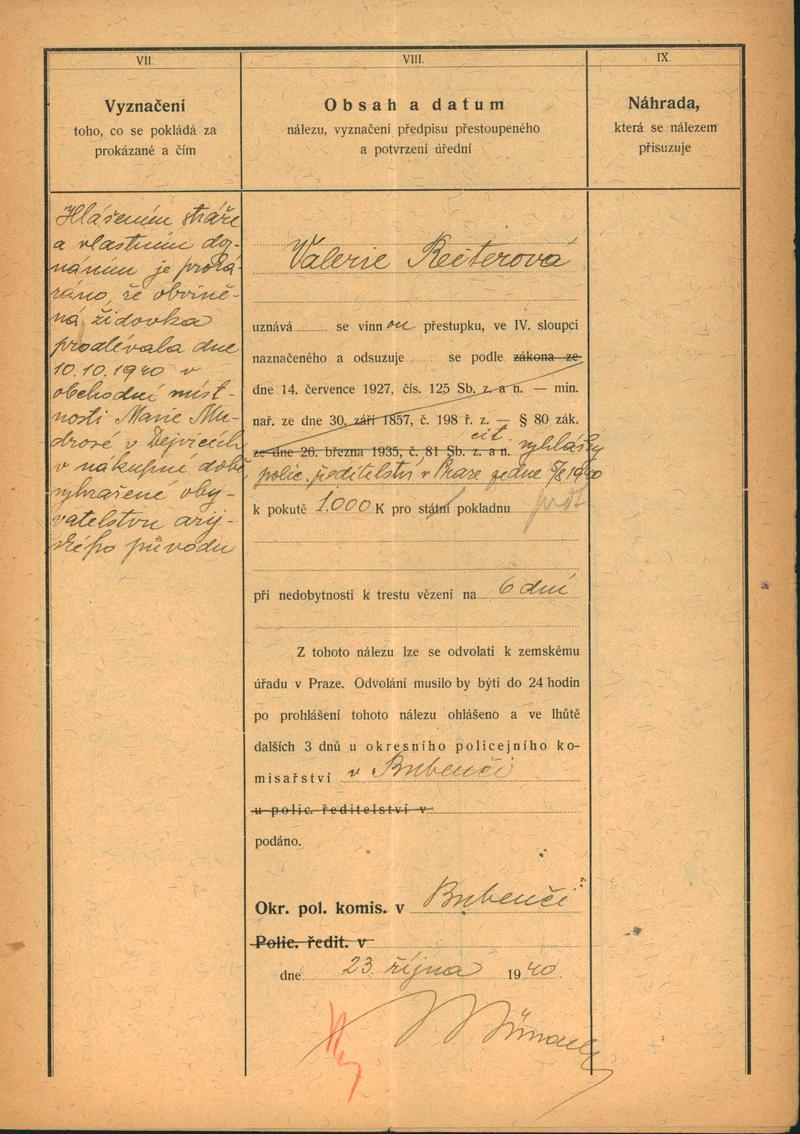 VII.
Vyznačení
toho, co se pokládá za
prokázané a čím
Hlášením stráže
a vlastním doz-
náním je proká-
záno, že obvině-
ná židovka
prodlévala dne
10.10.1940 v
obchodní míst-
nosti Marie Mu-
drové v Dejvicích
v nákupné době,
vyhražené oby-
vatelstvu arij-
ského původu
VIII.
Obsah a datum
nálezu, vyznačení předpisu přestoupeného
a potvrzení úřední
Valerie Reiterová
uznává se vinnou přestupku, ve IV. sloupci
naznačeného a odsuzuje se podle zákona ze
dne 14. července 1927, čís. 125 Sb. z. a n. — min.
nař. ze dne 30. září 1857, č. 198 ř. z. — § 80 zák.
ze dne 26. března 1935, č. 81 Sb. z. a n. cit. vyhlášky
polic. ředitelství v Praze ze dne 5/8 1940
k pokutě 1.000 K pro státní pokladnu
při nedobytnosti k trestu vězení na 6 dní
Z tohoto nálezu lze se odvolati k zemskému
úřadu v Praze. Odvolání musilo by býti do 24 hodin
po prohlášení tohoto nálezu ohlášeno a ve lhůtě
dalších 3 dnů u okresního policejního ko-
misařství v Bubenči
u polic. ředitelství v
podáno.
Okr. pol. komis. v Bubenči
Polic. ředit. v
dne 23. října 1940.
IX.
Náhrada,
která se nálezem
přisuzuje